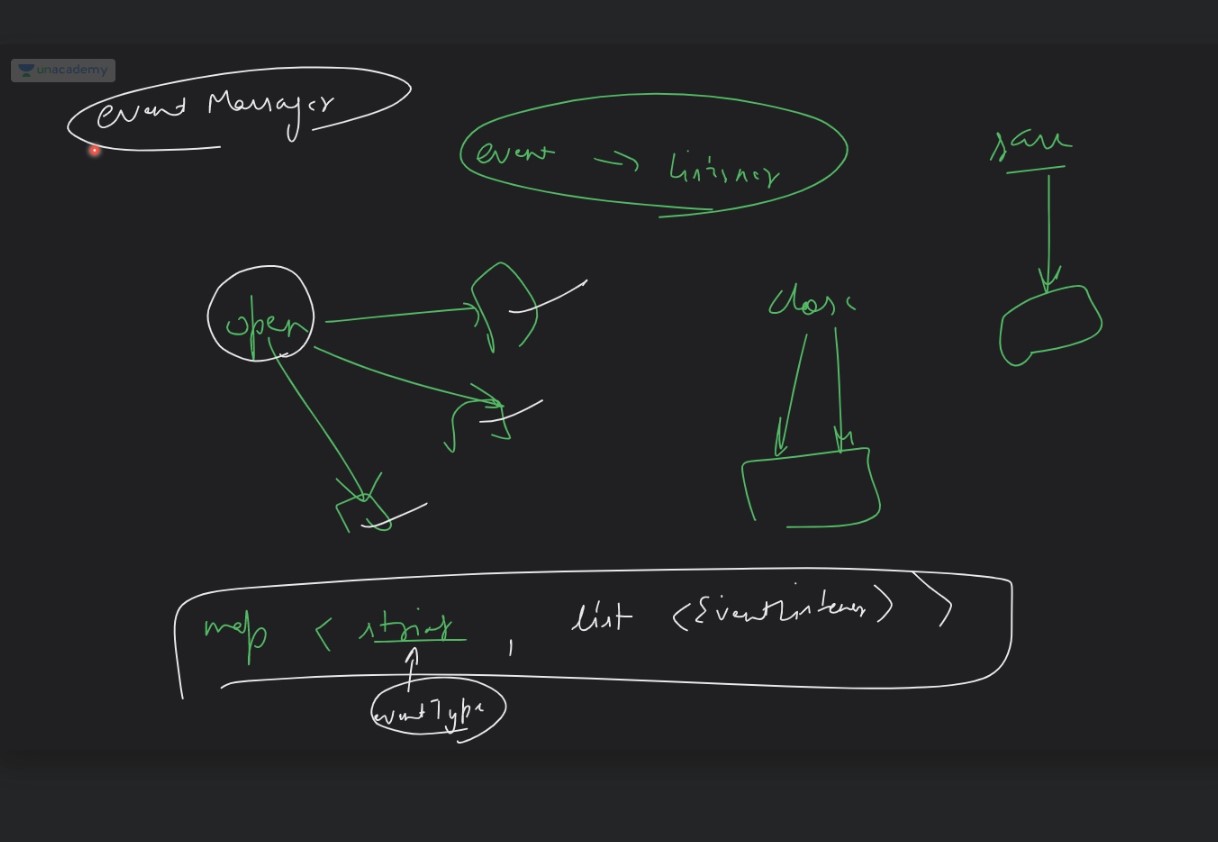 unacademy
event Manager
event -> Listner
save
open
close
map < string , list <EventListener> >
eventType